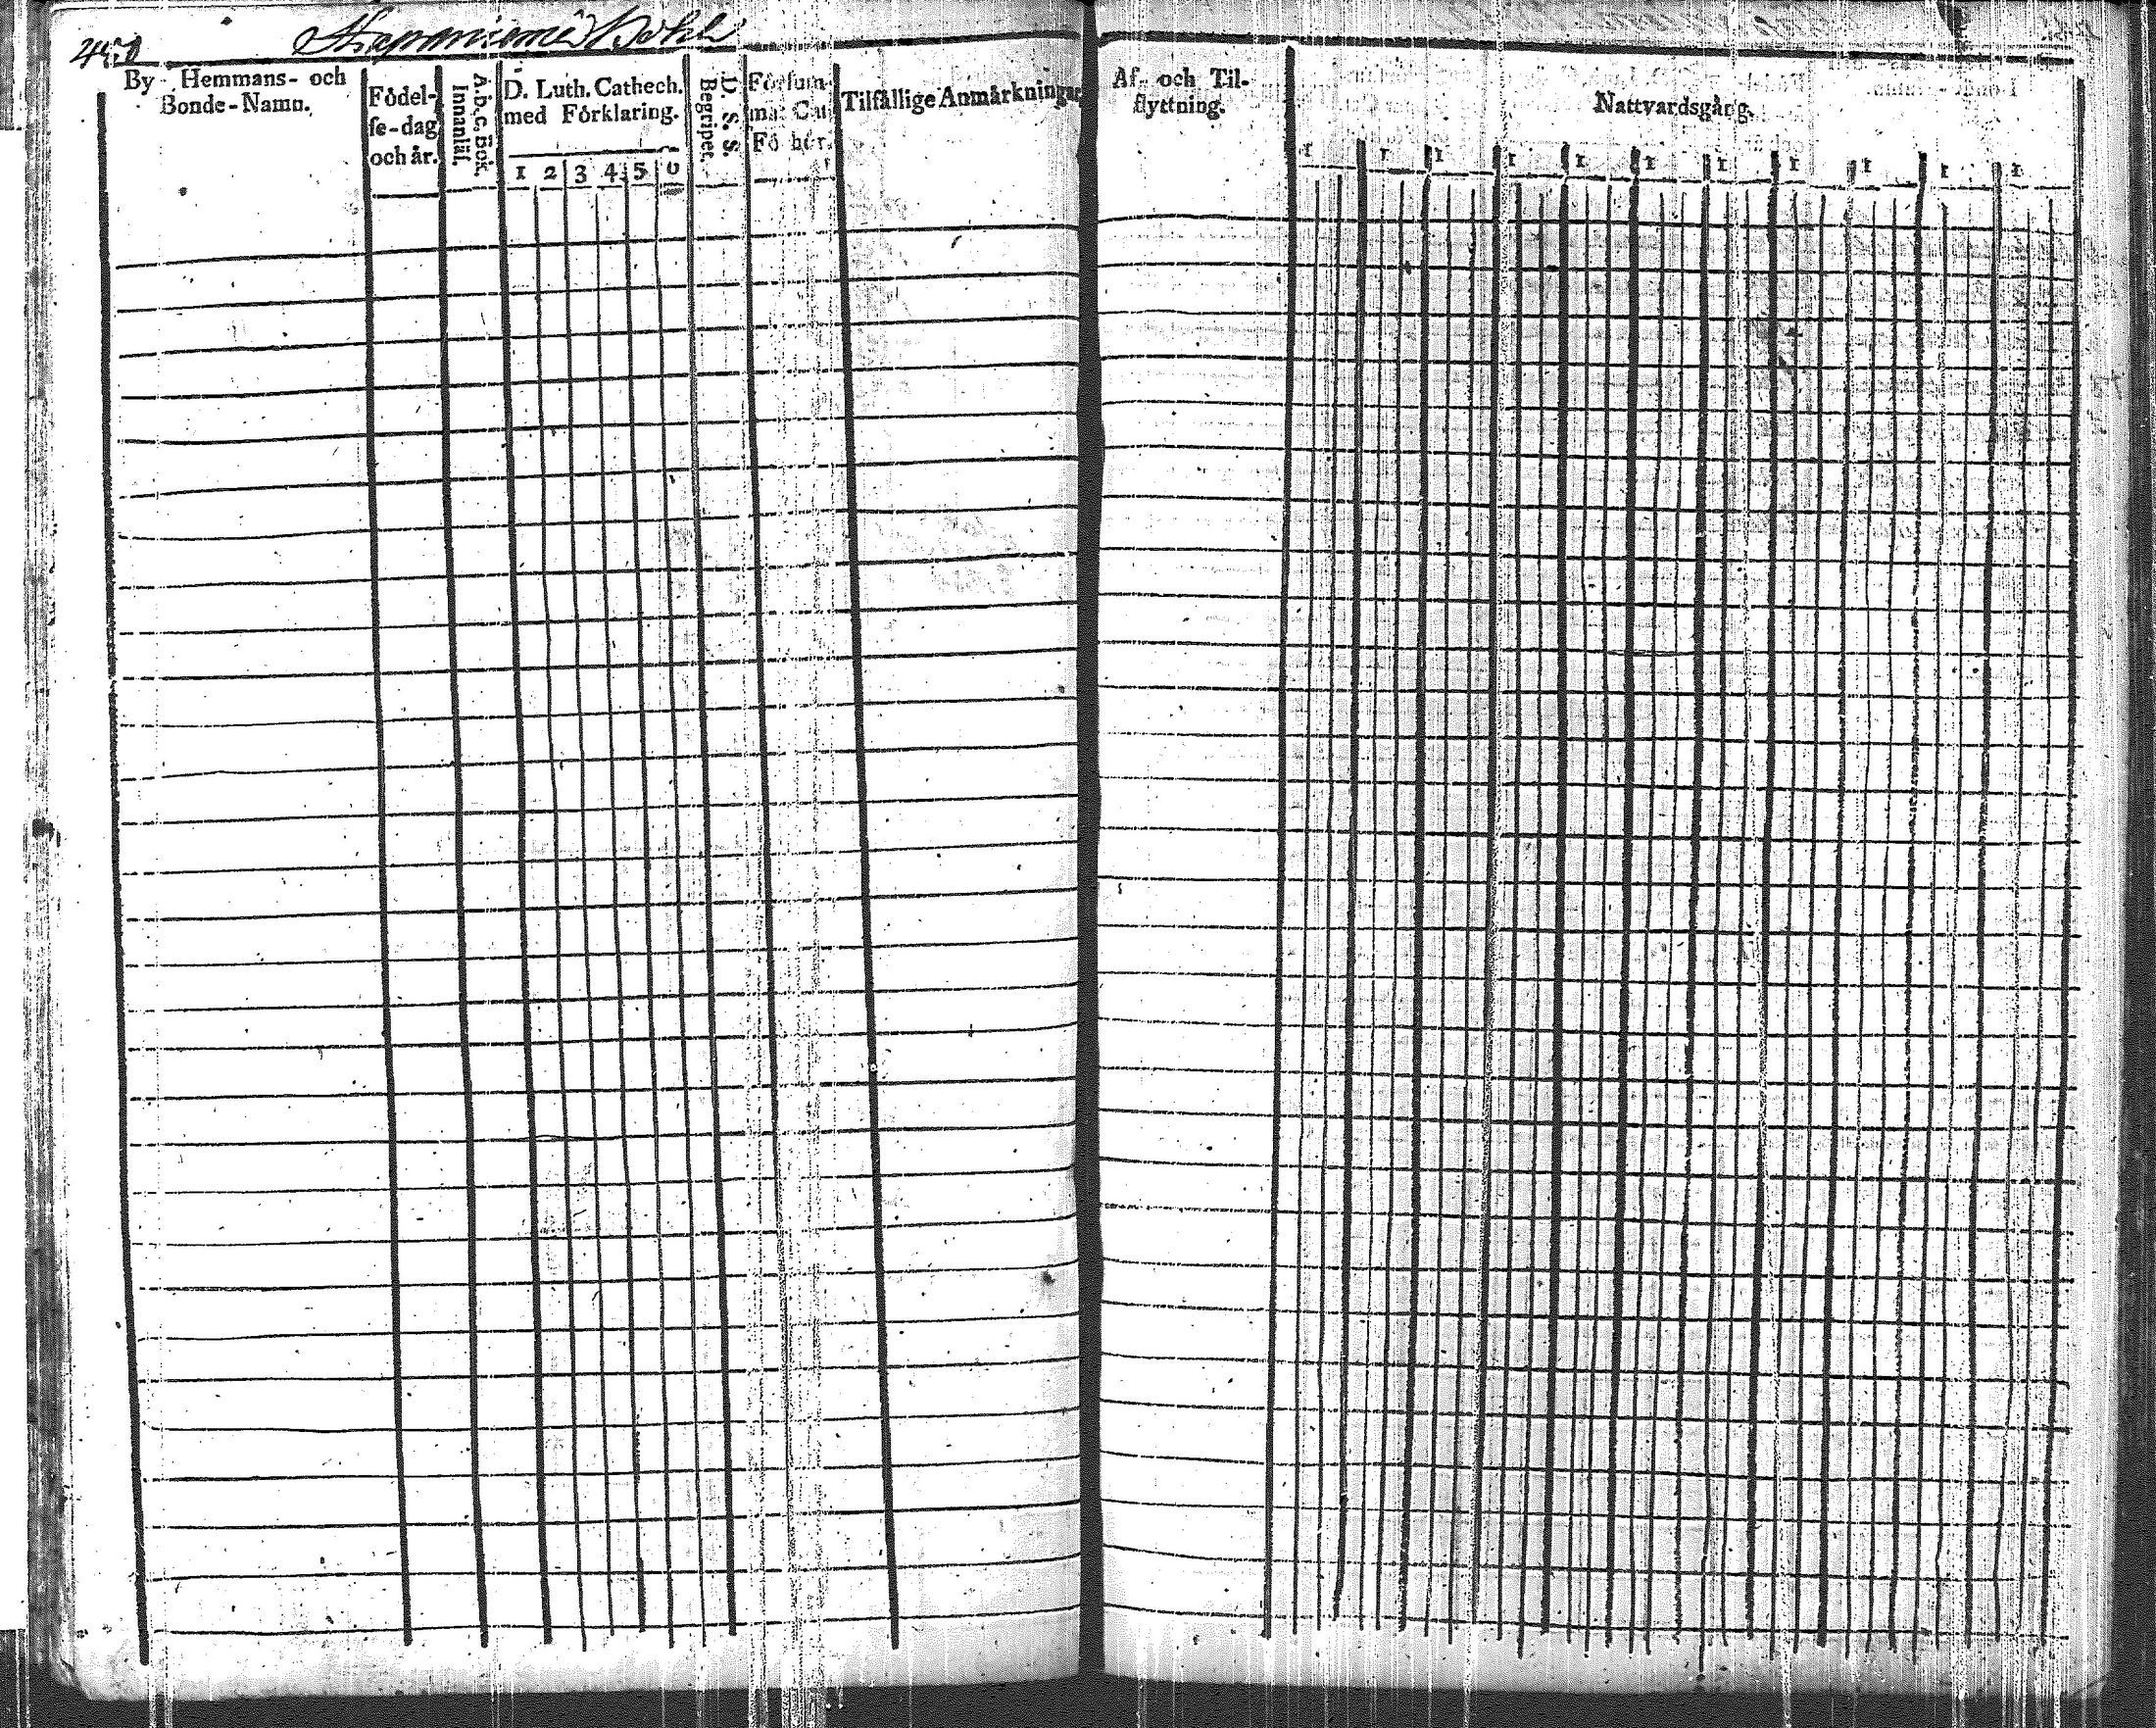 450
Haapaniemi Bohl
By Hemmans- och
Bonde-Namn.
Födel-
se-dag
och år.
A.b.c. Bok.
Innanläs.
D. Luth. Cathech.
med Förklaring.
1 2 3 4 5 6
D. S. S.
Begriper.
Försum-
ma: Cat
Fö hör.
Tilfällige Anmärkningar
Af- och Til-
flyttning.
Nattvardsgång.
1 1 1 1 1 1 1 1 1 1 1